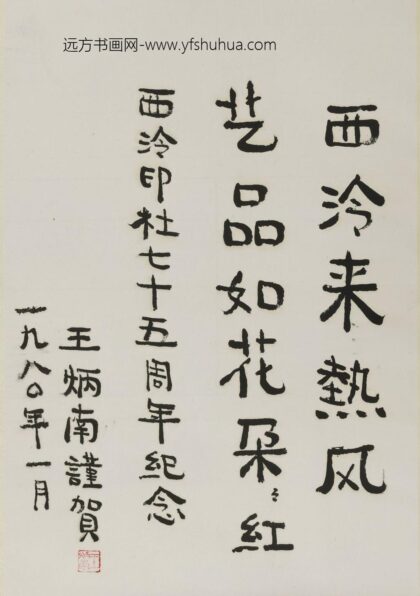 远方书画网-www.yfshuhua.com
西泠来热风
艺品如花朵〻红
西泠印社七十五周年纪念
王炳南謹賀
一九八〇年一月